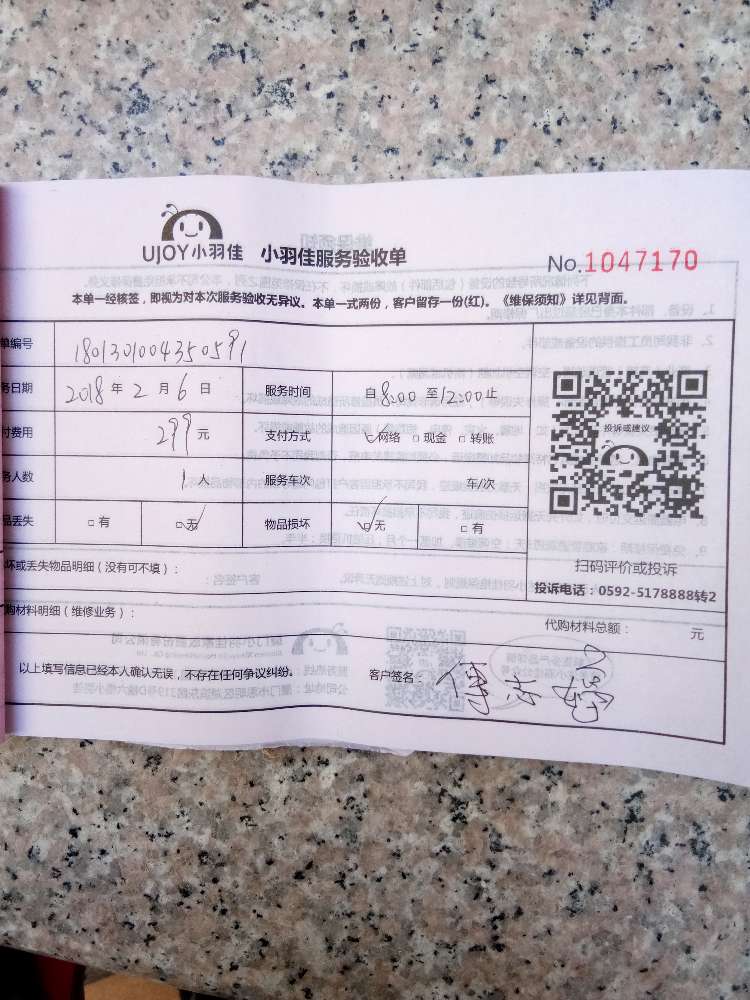 UJOY小羽佳 小羽佳服务验收单
No.1047170
本单一经核签，即视为对本次服务验收无异议。本单一式两份，客户留存一份(红)。《维保须知》详见背面。
单编号 18013010043505991
务日期 2018年2月6日 服务时间 自8:00至12:00止
付费用 299元 支付方式 ☑网络 □现金 □转账
务人数 1人 服务车次 车/次
品丢失 □有 ☑无 物品损坏 ☑无 □有
投诉或建议
扫码评价或投诉
投诉电话：0592-5178888转2
坏或丢失物品明细（没有可不填）：
购材料明细（维修业务）：
代购材料总额： 元
以上填写信息已经本人确认无误，不存在任何争议纠纷。 客户签名：